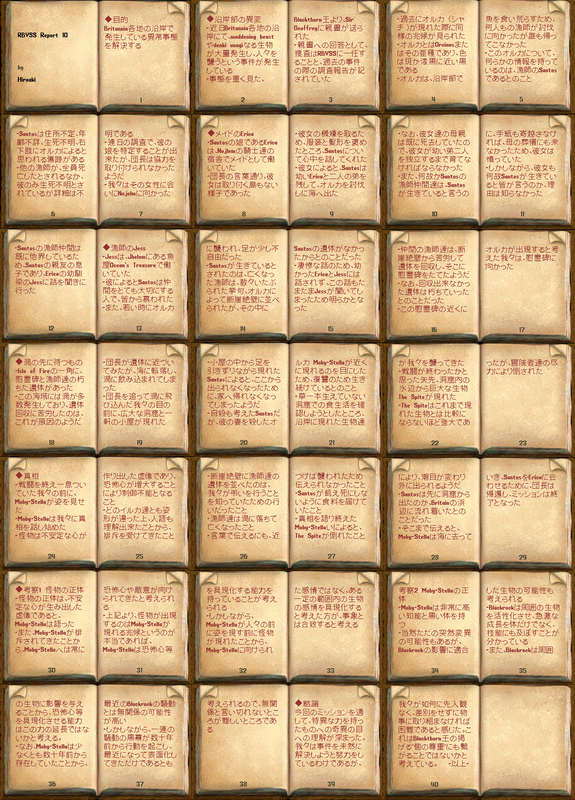 RBVSS Report 10
by
Hiroaki
◆目的
Britannia各地の沿岸で
発生している異常事態
を解決する
1
◆沿岸部の異変
・近日Britannia各地の沿岸
に生物
が大量発生し、人々を
襲うという事件が発生
している
・事態を重く見た、
2
Blackthorn王より、Sir
Geoffreyに親書が送ら
れた
・親書への回答として、
捜査はRBVSSに一任す
ることと、過去の事件
の際の調査報告が記
されていた
3
・過去にオルカ（シャ
チ）が現れた際に同
様の兆候が見られた
・オルカとはOrcinusま
たはその亜種であり、色
は斑か漆黒に近い黒
である
・オルカは、沿岸部で
4
魚を食い荒らすため、
何人もの漁師が討伐
に向かったが誰も帰って
こなかった
・このオルカについて、
何らかの情報を持って
いるのは、漁師のSantos
であるとのこと
5
・Santosは住所不定、年
齢不詳、生死不明、右
下肢にオルカによると
思われる傷跡がある
・他の漁師が、全員死
亡したとされるなか、
彼のみ生死不明とさ
れているが詳細は不
6
明である
・連日の調査で、彼の
娘を特定することが出
来たが、団長は協力を
取り付けられなかった
ようだ
・我々はその女性に会
いにNujelmに向かった
7
◆メイドのErica
・Santosの娘であるErica
は、Nujelmの騎士達の
宿舎でメイドとして働
いていた
・団長の言葉通り、彼
女は取り付く島もない
様子であった
8
・彼女の機嫌を取るた
め、服装と髪形を褒め
たところ、Santosについ
て心中を話してくれた
・彼女によると、Santosは
幼いEricaと二人の弟を
残して、オルカを討伐
しに海へ出た
9
・なお、彼女達の母親
は既に死去していたの
で、彼女が幼い弟二人
を独立するまで育てな
ければならなかった
・また、何故かSantosの
漁師仲間達は、Santos
が生きていると言うの
10
に、手紙も寄越さなけ
れば、母の葬儀にも来
なかったため、彼女は
憤っていた
・しかしながら、彼女も
何故Santosが生きている
と皆が言うのか、理
由は知らなかった
11
・Santosの漁師仲間は
既に他界しているた
め、Santosの親友の息
子でありEricaの幼馴
染のJessに話を聞きに
行った
12
◆漁師のJess
・Jessは、Jhelomにある魚
屋Ocean's Treasureで働
いていた
・彼によるとSantosは仲
間をとても大切にする
人で、皆から慕われた
・また、若い時にオルカ
13
に襲われ、足が少し不
自由だった
・Santosが生きていると
されたのは、亡くなった
漁師は、散々いたぶら
れた挙句、オルカによ
って断崖絶壁に並べら
れたが、その中に
14
Santosの遺体がなかっ
たからとのことだった
・凄惨な話のため、幼か
ったEricaとJessには話
されず、この話もたま
たまJessが聞いてしまっ
たため明らかとなった
15
・仲間の漁師達は、断
崖絶壁から苦労して
遺体を回収し、そこに
慰霊碑をたてたようだ
・なお、回収出来なかっ
た遺体は朽ちていった
とのことだった
・この慰霊碑の近くに
16
オルカが出現すると考
えた我々は、慰霊碑に
向かった
17
◆渦の先に待つもの
・Isle of Fireの一角に、
慰霊碑と漁師達の朽ち
た遺体があった
・この海域には渦が多
数発生しており、遺体
回収に苦労したのは、
これが原因のようだ
18
・団長が遺体に近づい
てみたが、海に転落し、
渦に飲み込まれてしま
った
・団長を追って渦に飛
び込んだ我々の目の
前に、広大な洞窟と一
軒の小屋が現れた
19
・小屋の中から足を
引きずりながら現れた
Santosによると、ここか
ら出られなくなったため
に、家へ帰れなくなっ
てしまったようだ
・自殺も考えたSantosだ
が、彼の妻を殺したオ
20
ルカ Moby-Stellaが近く
に現れるのを目にした
ため、復讐のため生き
続けているとのこと
・草一本生えていない
洞窟での食生活を確
認しようとしたところ、
沿岸に現れた生物達
21
が我々を襲ってきた
・戦闘が終わったかと
思った矢先、洞窟内の
水辺から巨大な生物
The Spiteが現れた
・The Spiteはこれまで現
れた生物とは比較にな
らないほど強大であ
22
ったが、冒険者達の尽
力により倒された
23
◆真相
・戦闘を終え一息つい
ていた我々の前に、
Moby-Stellaが姿を見せ
た
・Moby-Stellaは我々に真
相を話し始めた
・怪物は不安定な心が
24
作り出した虚像であり、
恐怖心が増大するこ
とにより制御不能となる
こと
・どのイルカ達とも姿
形が違った上、人語も
理解出来たことから、
排斥を受けてきたこと
25
・断崖絶壁に漁師達の
遺体を並べたのは、
我々が弔いを行うこと
を知っていたための行
いだったこと
・漁師達は渦に落ちて
亡くなったこと
・言葉で伝えるにも、近
26
づけば襲われたため
伝えられなかったこと
・Santosが飢え死にしな
いように食料を届けて
いたこと
・真相を語り終えた
Moby-Stellaによると、
The Spiteが倒れたこと
27
により、潮目が変わり
外に出られるようだ
・Santosは先に洞窟から
出たのか、Britainの海
辺に流れ着いたとのこ
とだった
・そこまで伝えると、
Moby-Stellaは海に去って
28
いき、SantosをEricaに会
わせるために、団長は
帰還し、ミッションは終
了となった
29
◆考察1 怪物の正体
・怪物の正体は、不安
定な心が生み出した虚
像であると、
Moby-Stellaは語った
・また、Moby-Stellaが排
斥されてきたことか
ら、Moby-Stellaへは常に
30
恐怖心や敵意が向け
られてきたと考えられ
る
・上記より、怪物が出現
するのはMoby-Stellaが
現れる兆候というのが
本当であれば、
Moby-Stellaは恐怖心等
31
を具現化する能力を
持っていることが考え
られる
・しかしながら、
Moby-Stellaが人々の前
に姿を現す前に怪物が
現れたことから、
Moby-Stellaに向けられ
32
た感情ではなく、ある
一定の範囲内の生物
の感情を具現化すると
考えた方が、事象とは
合致すると考える
33
考察2 Moby-Stellaの正
体
・Moby-Stellaは非常に高
い知能と黒い体を持
つ
・当然ただの突然変異
の可能性もあるが、
Blackrockの影響に適合
34
した生物の可能性も考
えられる
・Blackrockは周囲の生物
を活性化させ、急激な
成長を体だけでなく、
技能にも及ぼすことが
分かっている
・また、Blackrockは周囲
35
の生物に影響を与え
ることから、恐怖心等
を具現化させる能力は
この力の延長ではな
いかと考える。
・なお、Moby-Stellaは少な
くとも数十年前から
存在していたことから、
36
最近のBlackrockの騒動
とは無関係の可能性
が高い
・しかしながら、一連の
騒動の黒幕が数十年
前から行動を起こし、
最近になって表面化し
てきただけであるとも
37
考えられるので、無関
係と言い切れないとこ
ろが難しいところであ
る
38
◆結論
今回のミッションを通
して、特異な力を持っ
たものへの奇異の目へ
の理解が深まった。
我々は事件を未然に解
決しようと努力をし
ているわけであるが、
39
我々が如何に先入観
なく、差別をせずに物
事に取り組まなければ
困難であると感じた。こ
れはBlackthorn王の掲
げる「個の尊重」にも繋
がることではないかと
考えている。　-以上-
40